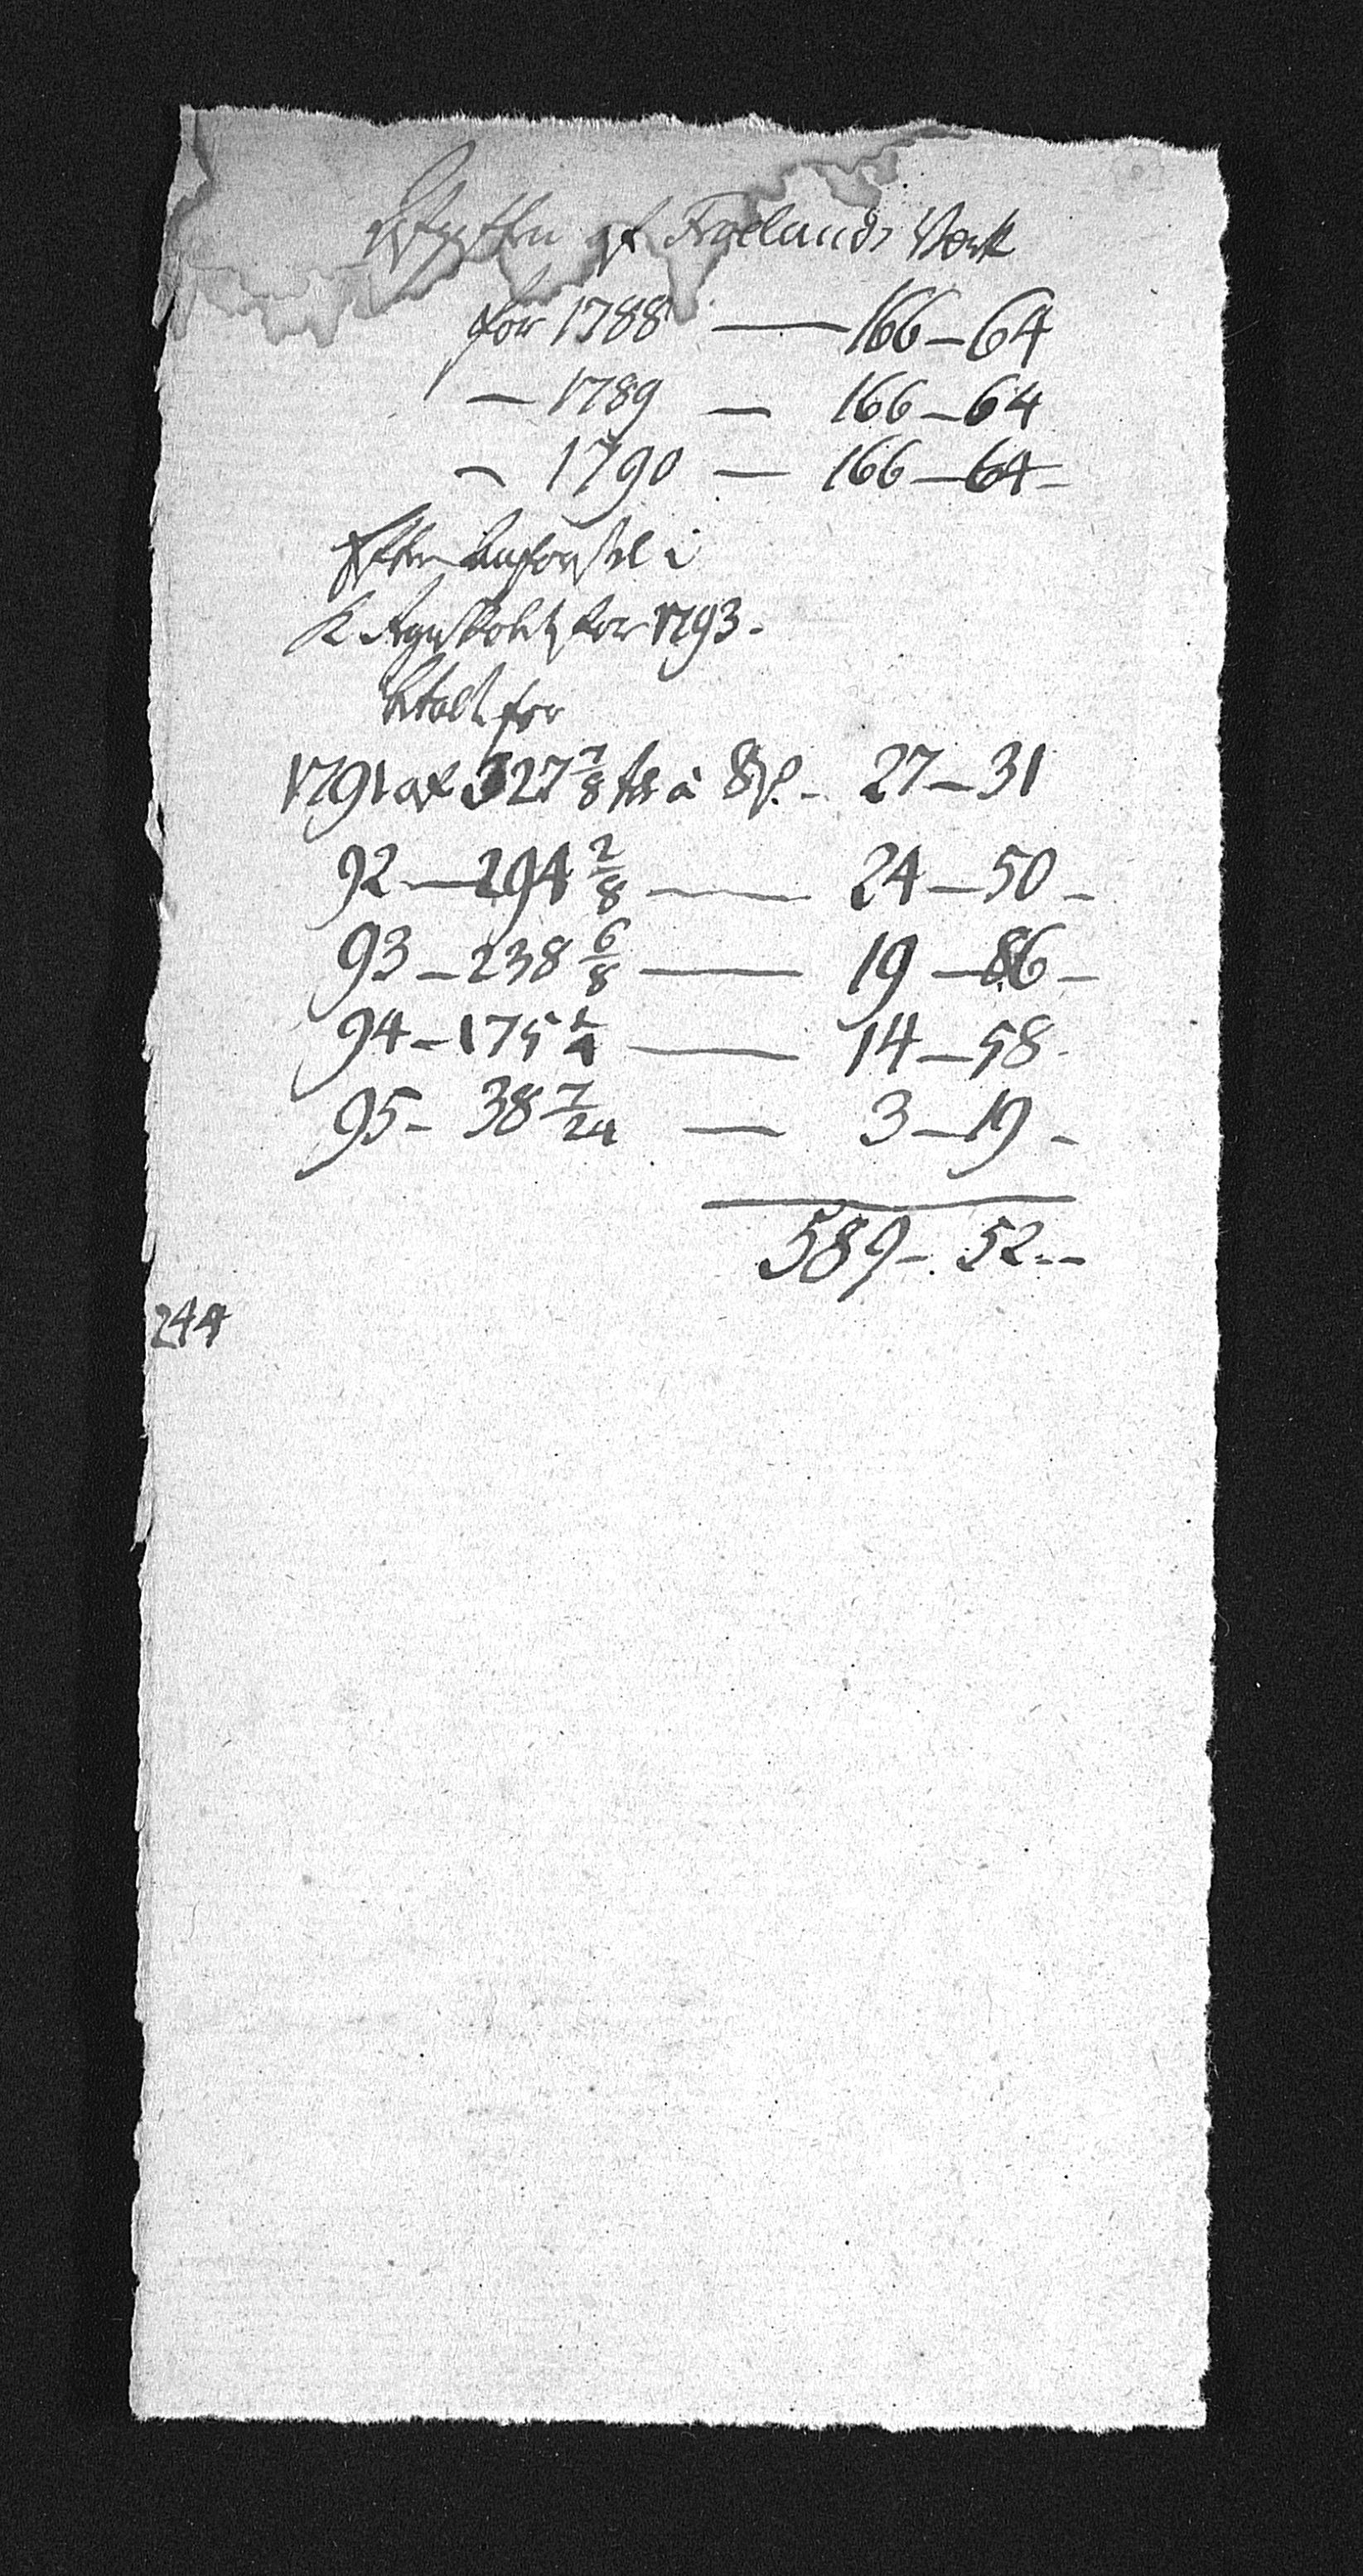 af Froelands Værk
for 1788 — 166 – 64
— 1789 — 166 – 64
– 1790 — 166 – 64 –
Efter i
for 1793.
betalt for
1791 af 327 7/8 à 8 β. – 27 – 31
92 — 294 2/8 — 24 – 50 –
93 – 238 6/8 — 19 – 86 –
94 – 175 — 14 – 58.
95 – 38 7/24 — 3 – 19 –
589 – 52 –
244